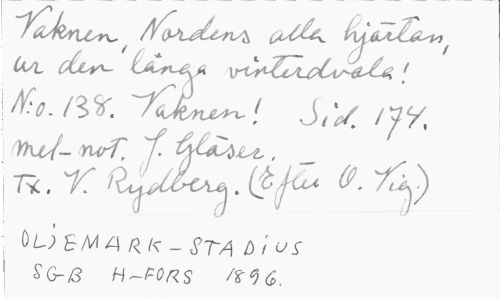 Vaknen, Nordens alla hjärtan,
ur den långa vinterdvala!
N:o. 138. Vaknen! Sid. 174.
mel-not. J. Gläser.
Tx. V. Rydberg. (Efter O. Vig.)
OLJEMARK-STADIUS
SGB H-FORS 1896.